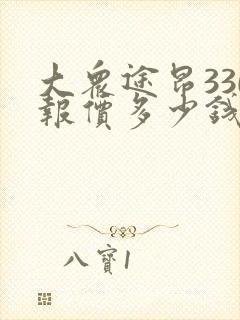 大眾途昂330
報價多少錢
八寶1